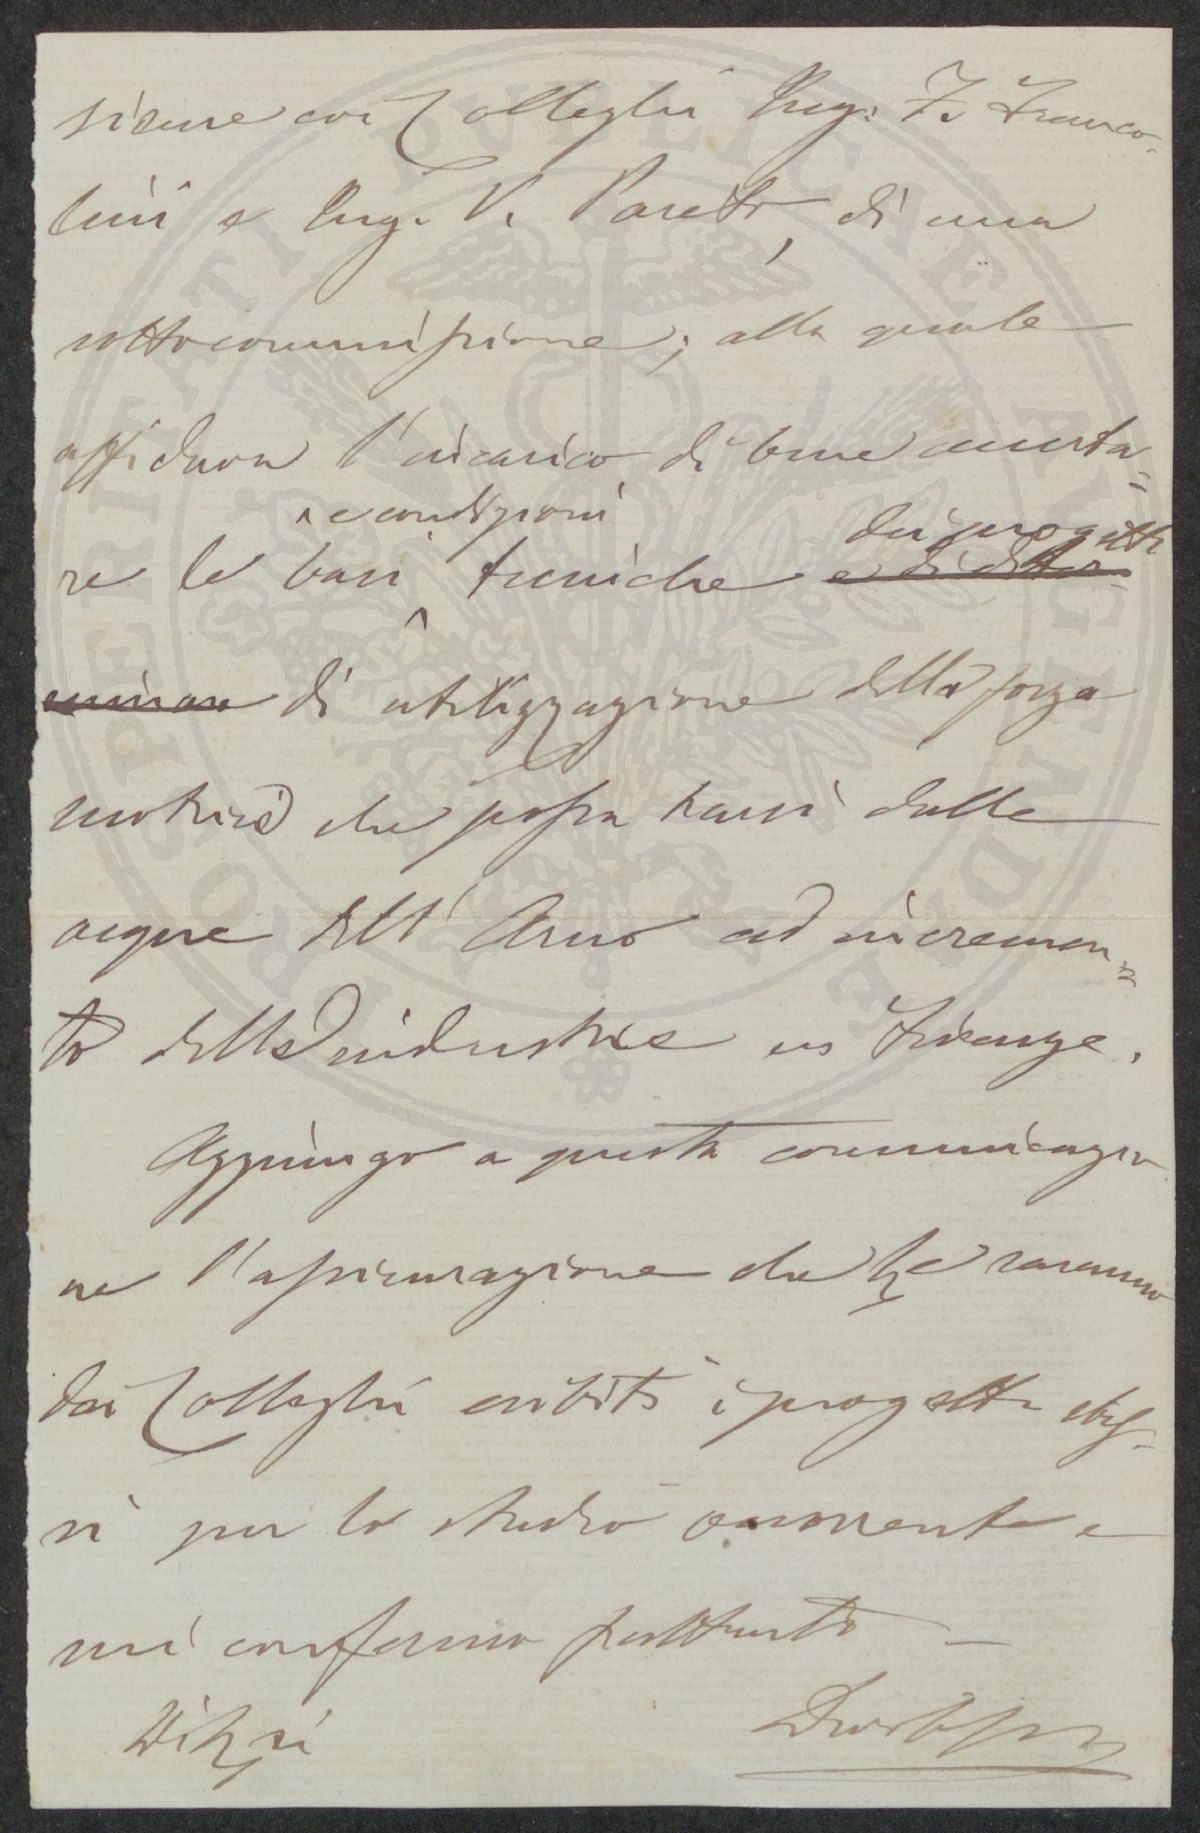 sieme coi Colleghi Ing. F. Franco-
lini e Ing. V. Pareto, di una
sottocommissione; alla quale
affidava l'incarico di bene accerta=
e condizioni
dei progetti
re le basi tecniche e di deter-
minare di utilizzazione della forza
motrice che possa trarsi dalle
acque dell'Arno ad incremen=
to delle industrie in Firenze.
Aggiungo a questa comunicazio
ne l'assicurazione che le saranno
dai Colleghi esibiti i progetti
si per lo studio occorrente e
mi confermo frattanto